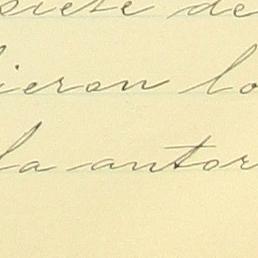 siete de
ieron lo
la autor